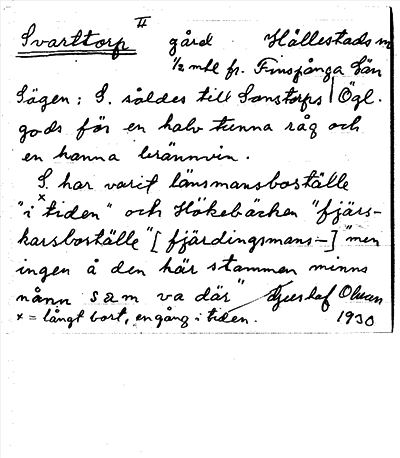 Svarttorp II gård Hällestads sn
1/2 mtl fr. Finspånga län
Sägen: S. såldes till Sonstorps Ögl.
gods för en halv tunna råg och
en kanna brännvin.
S. har varit länsmansboställe
"i tiden x" och Hökebäcken "fjärs-
karsboställe" [fjärdingsmans-] "men
ingen å den här stammen minns
nånn sam va där" Olsson
x = långt bort, en gång i tiden. 1930